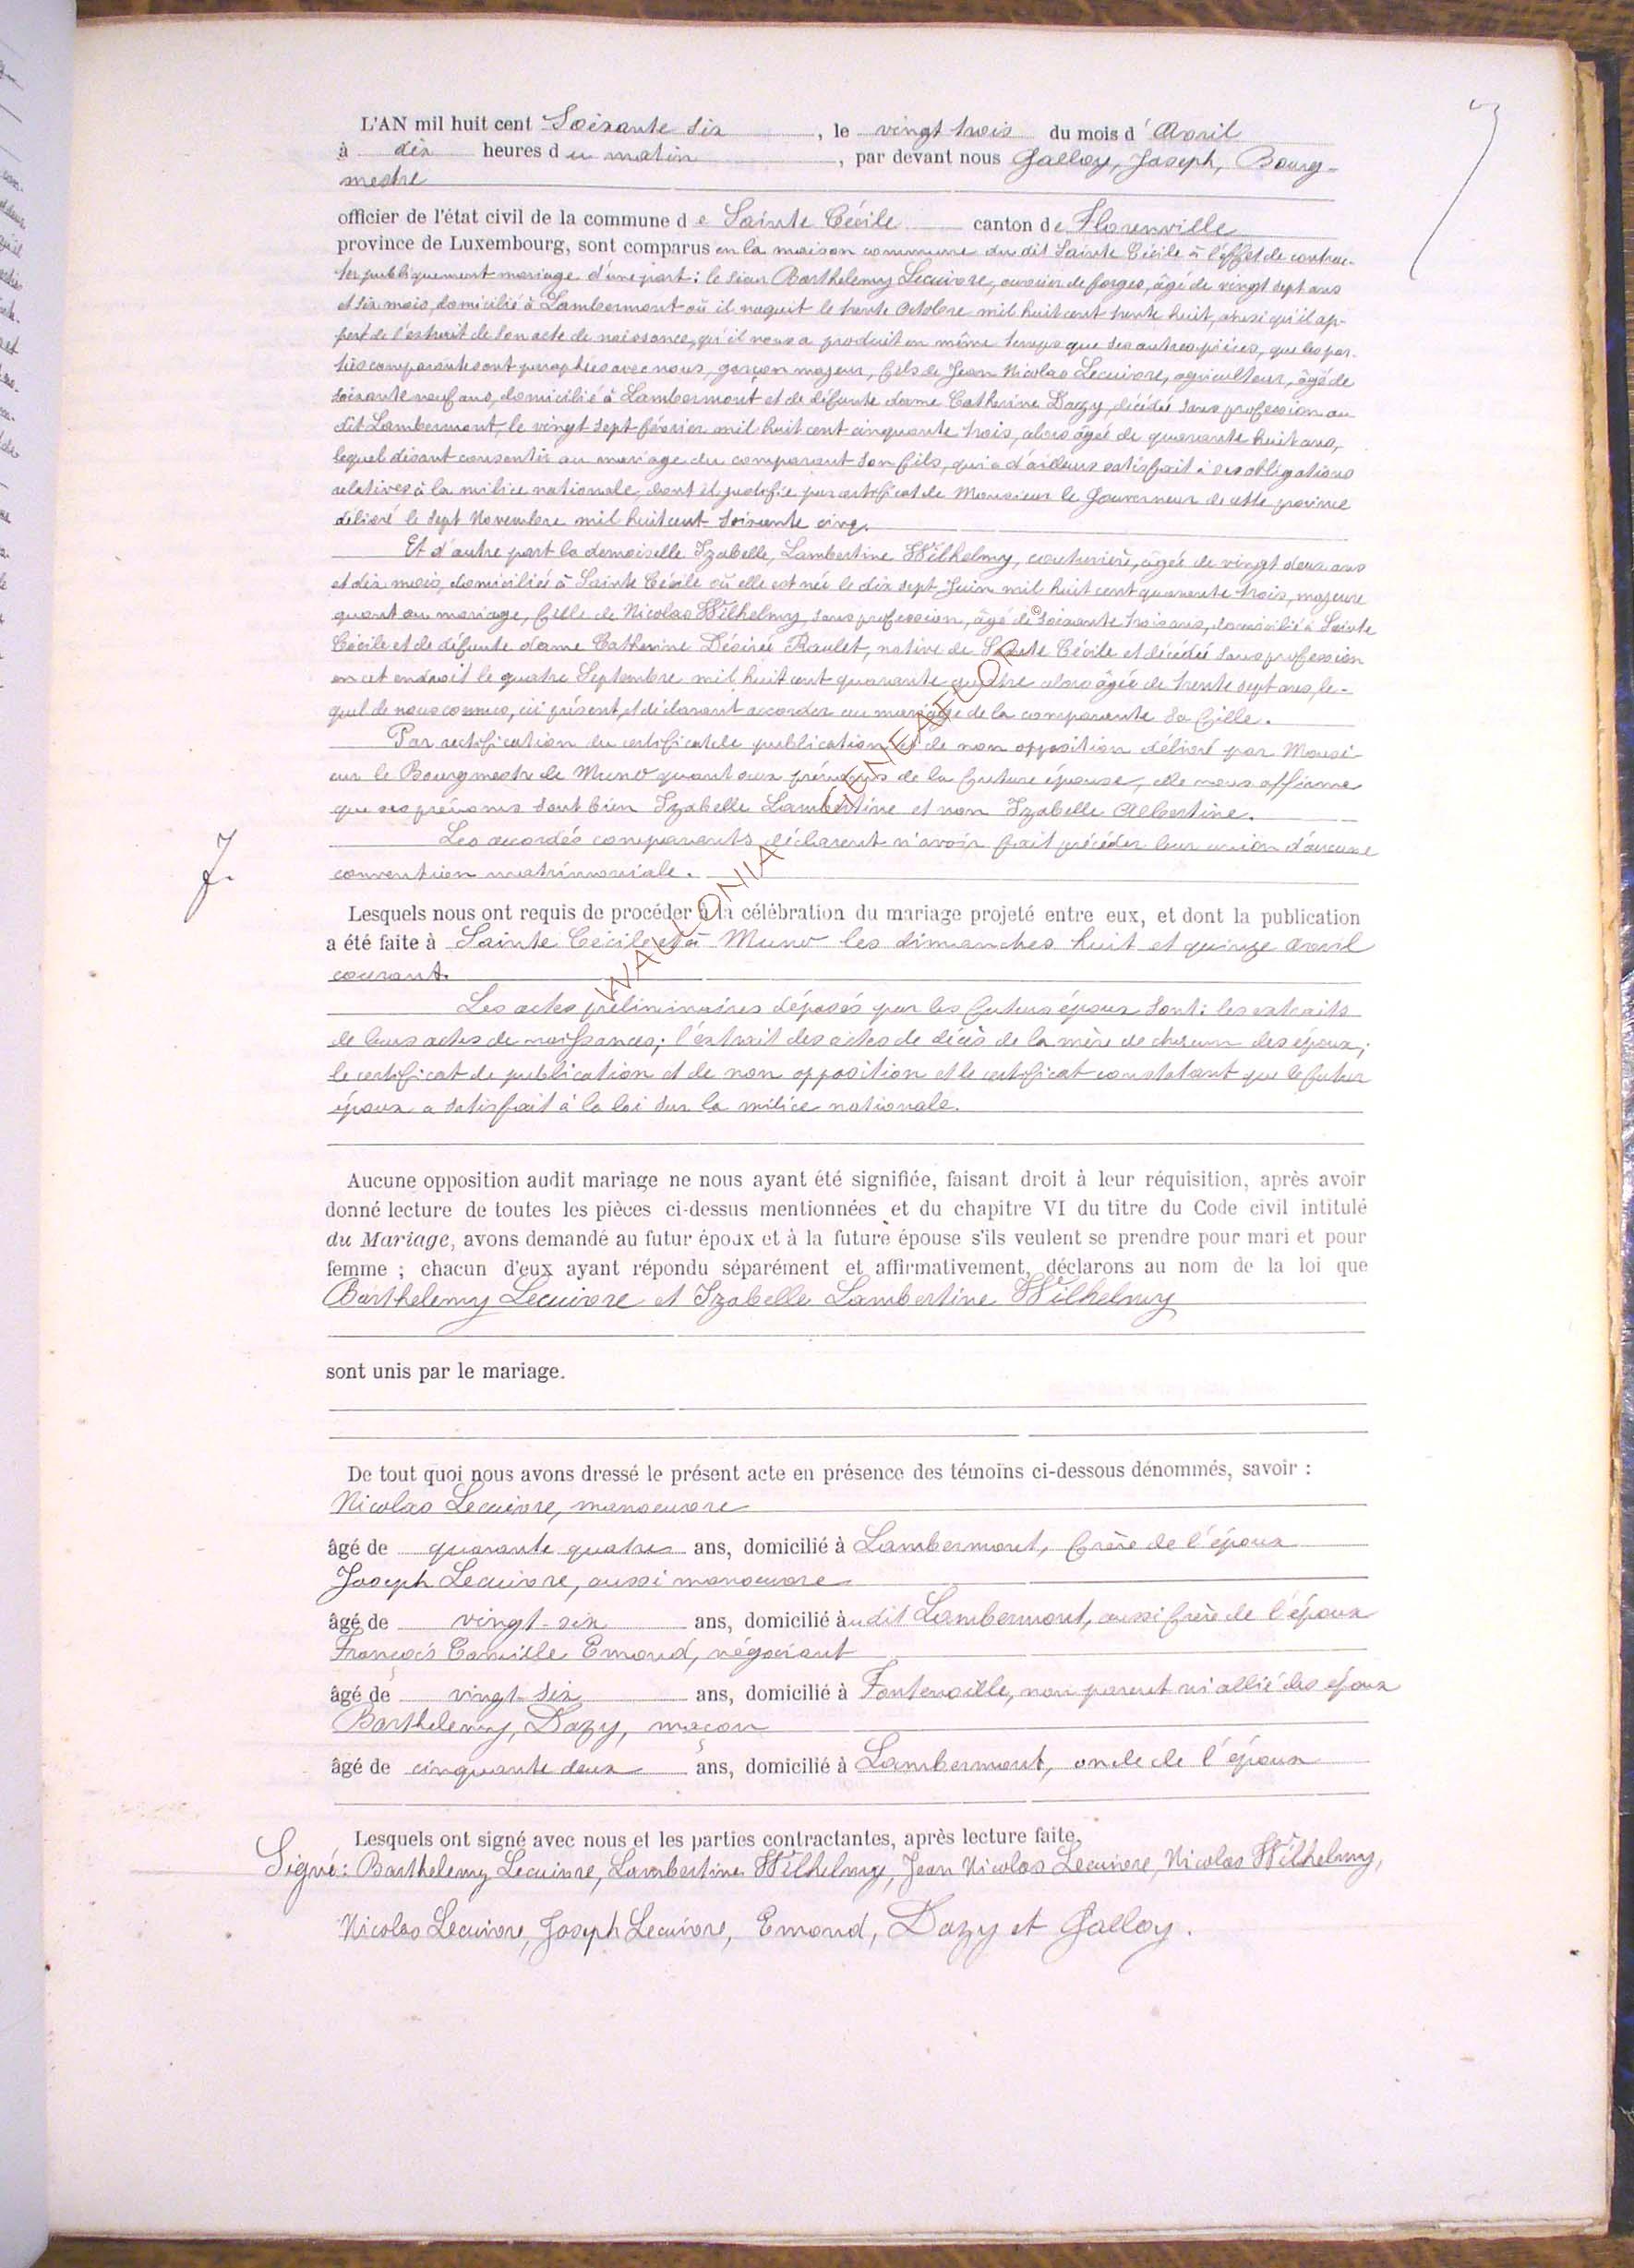 7
L'AN mil huit cent Soixante six, le vingt trois du mois d'Avril
à dix heures du matin, par devant nous Galloy, Joseph, Bourg-
mestre
officier de l'état civil de la commune de Sainte Cécile canton de Florenville
province de Luxembourg, sont comparus en la maison commune du dit Sainte Cécile à l'effet de contrac-
ter publiquement mariage d'une part : le sieur Barthelemy Lecuivre, ouvrier de forges, âgé de vingt sept ans
et six mois, domicilié à Lambermont où il naquit le trente Octobre mil huit cent trente huit, ainsi qu'il ap-
pert de l'extrait de son acte de naissance, qu'il nous a produit en même temps que ses autres pièces, que les par-
ties comparantes ont paraphées avec nous, garçon majeur, fils de Jean Nicolas Lecuivre, agriculteur, âgé de
soixante neuf ans, domicilié à Lambermont et de défunte dame Catherine Dazy, décédée sans profession au
dit Lambermont, le vingt sept février mil huit cent cinquante trois, alors âgée de quarante huit ans,
lequel disant consentir au mariage du comparant son fils, qui a d'ailleurs satisfait à ses obligations
relatives à la milice nationale, dont il justifie par certificat de Monsieur le Gouverneur de cette province
délivré le sept Novembre mil huit cent soixante cinq.
Et d'autre part la demoiselle Izabelle, Lambertine Wilhelmy, couturière, âgée de vingt deux ans
et dix mois, domiciliée à Sainte Cécile où elle est née le dix sept Juin mil huit cent quarante trois, majeure
quant au mariage, fille de Nicolas Wilhelmy, sans profession, âgé de soixante trois ans, domicilié à Sainte
Cécile et de défunte dame Catherine Désirée Raulet, native de Sainte Cécile et décédée sans profession
en cet endroit le quatre Septembre mil huit cent quarante quatre alors âgée de trente sept ans, le-
quel de nous connu, ici présent, et déclarant accorder au mariage de la comparante sa fille.
Par rectification du certificat de publication et de non opposition délivré par Monsi-
eur le Bourgmestre de Muno quant aux prénoms de la future épouse, elle nous affirme
que ses prénoms sont bien Izabelle Lambertine et non Izabelle Albertine.
Les accordés comparants déclarent n'avoir fait précéder leur union d'aucune
convention matrimoniale.
J.
Lesquels nous ont requis de procéder à la célébration du mariage projeté entre eux, et dont la publication
a été faite à Sainte Cécile et à Muno les dimanches huit et quinze avril
courant.
Les actes préliminaires déposés par les futurs époux sont : les extraits
de leurs actes de naissances; l'extrait des actes de décès de la mère de chacun des époux;
le certificat de publication et de non opposition et le certificat constatant que le futur
époux a satisfait à la loi sur la milice nationale.
Aucune opposition audit mariage ne nous ayant été signifiée, faisant droit à leur réquisition, après avoir
donné lecture de toutes les pièces ci-dessus mentionnées et du chapitre VI du titre du Code civil intitulé
du Mariage, avons demandé au futur époux et à la future épouse s'ils veulent se prendre pour mari et pour
femme ; chacun d'eux ayant répondu séparément et affirmativement, déclarons au nom de la loi que
Barthelemy Lecuivre et Izabelle Lambertine Wilhelmy
sont unis par le mariage.
De tout quoi nous avons dressé le présent acte en présence des témoins ci-dessous dénommés, savoir :
Nicolas Lecuivre, manoeuvre
âgé de quarante quatre ans, domicilié à Lambermont, frère de l'époux
Joseph Lecuivre, aussi manoeuvre
âgé de vingt-six ans, domicilié audit Lambermont, aussi frère de l'époux
François Camille Emond, négociant
âgé de vingt-six ans, domicilié à Fontenoille, non parent ni allié des époux
Barthelemy, Dazy, maçon
âgé de cinquante deux ans, domicilié à Lambermont, oncle de l'époux
Lesquels ont signé avec nous et les parties contractantes, après lecture faite.
Signé : Barthelemy Lecuivre, Lambertine Wilhelmy, Jean Nicolas Lecuivre, Nicolas Wilhelmy,
Nicolas Lecuivre, Joseph Lecuivre, Emond, Dazy et Galloy.
WALLONIA GENEAFLOR ©